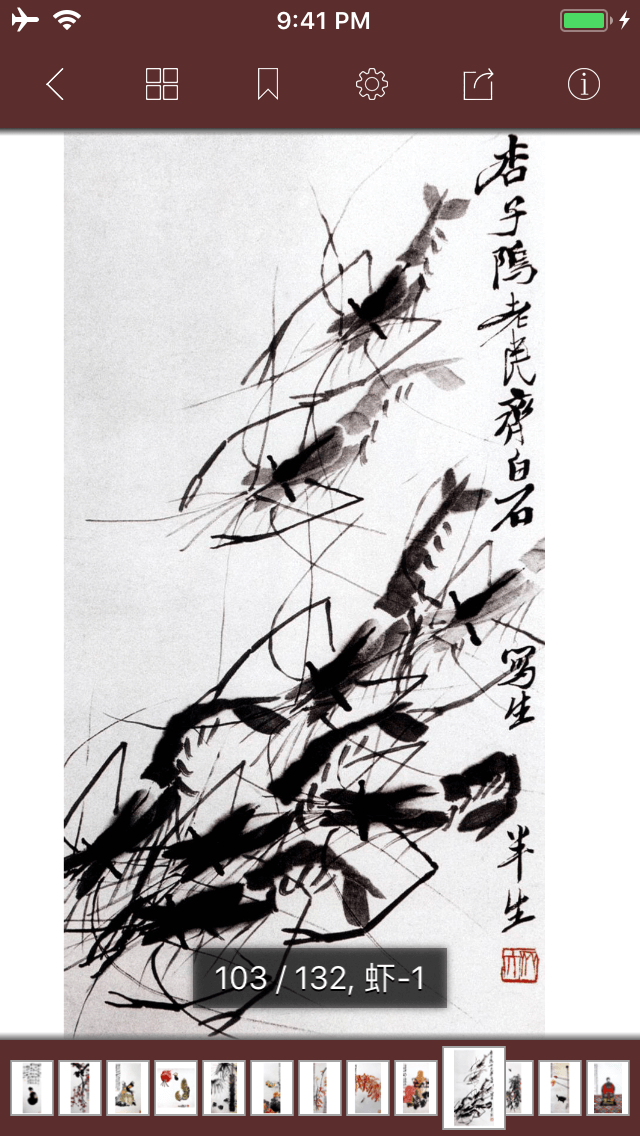 9:41 PM
杏子隖老民齊白石
写生
半生
103 / 132, 虾-1